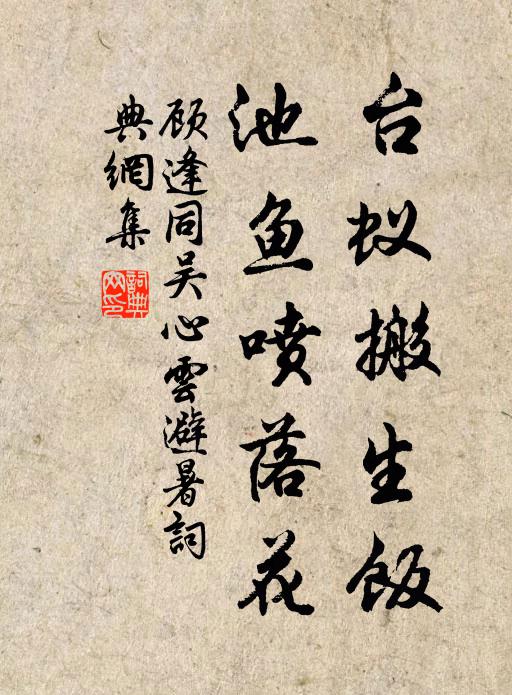 台蚁搬生飯
池鱼喷落花
顾逢同吴心雲避暑詞
典網集
詞典网印